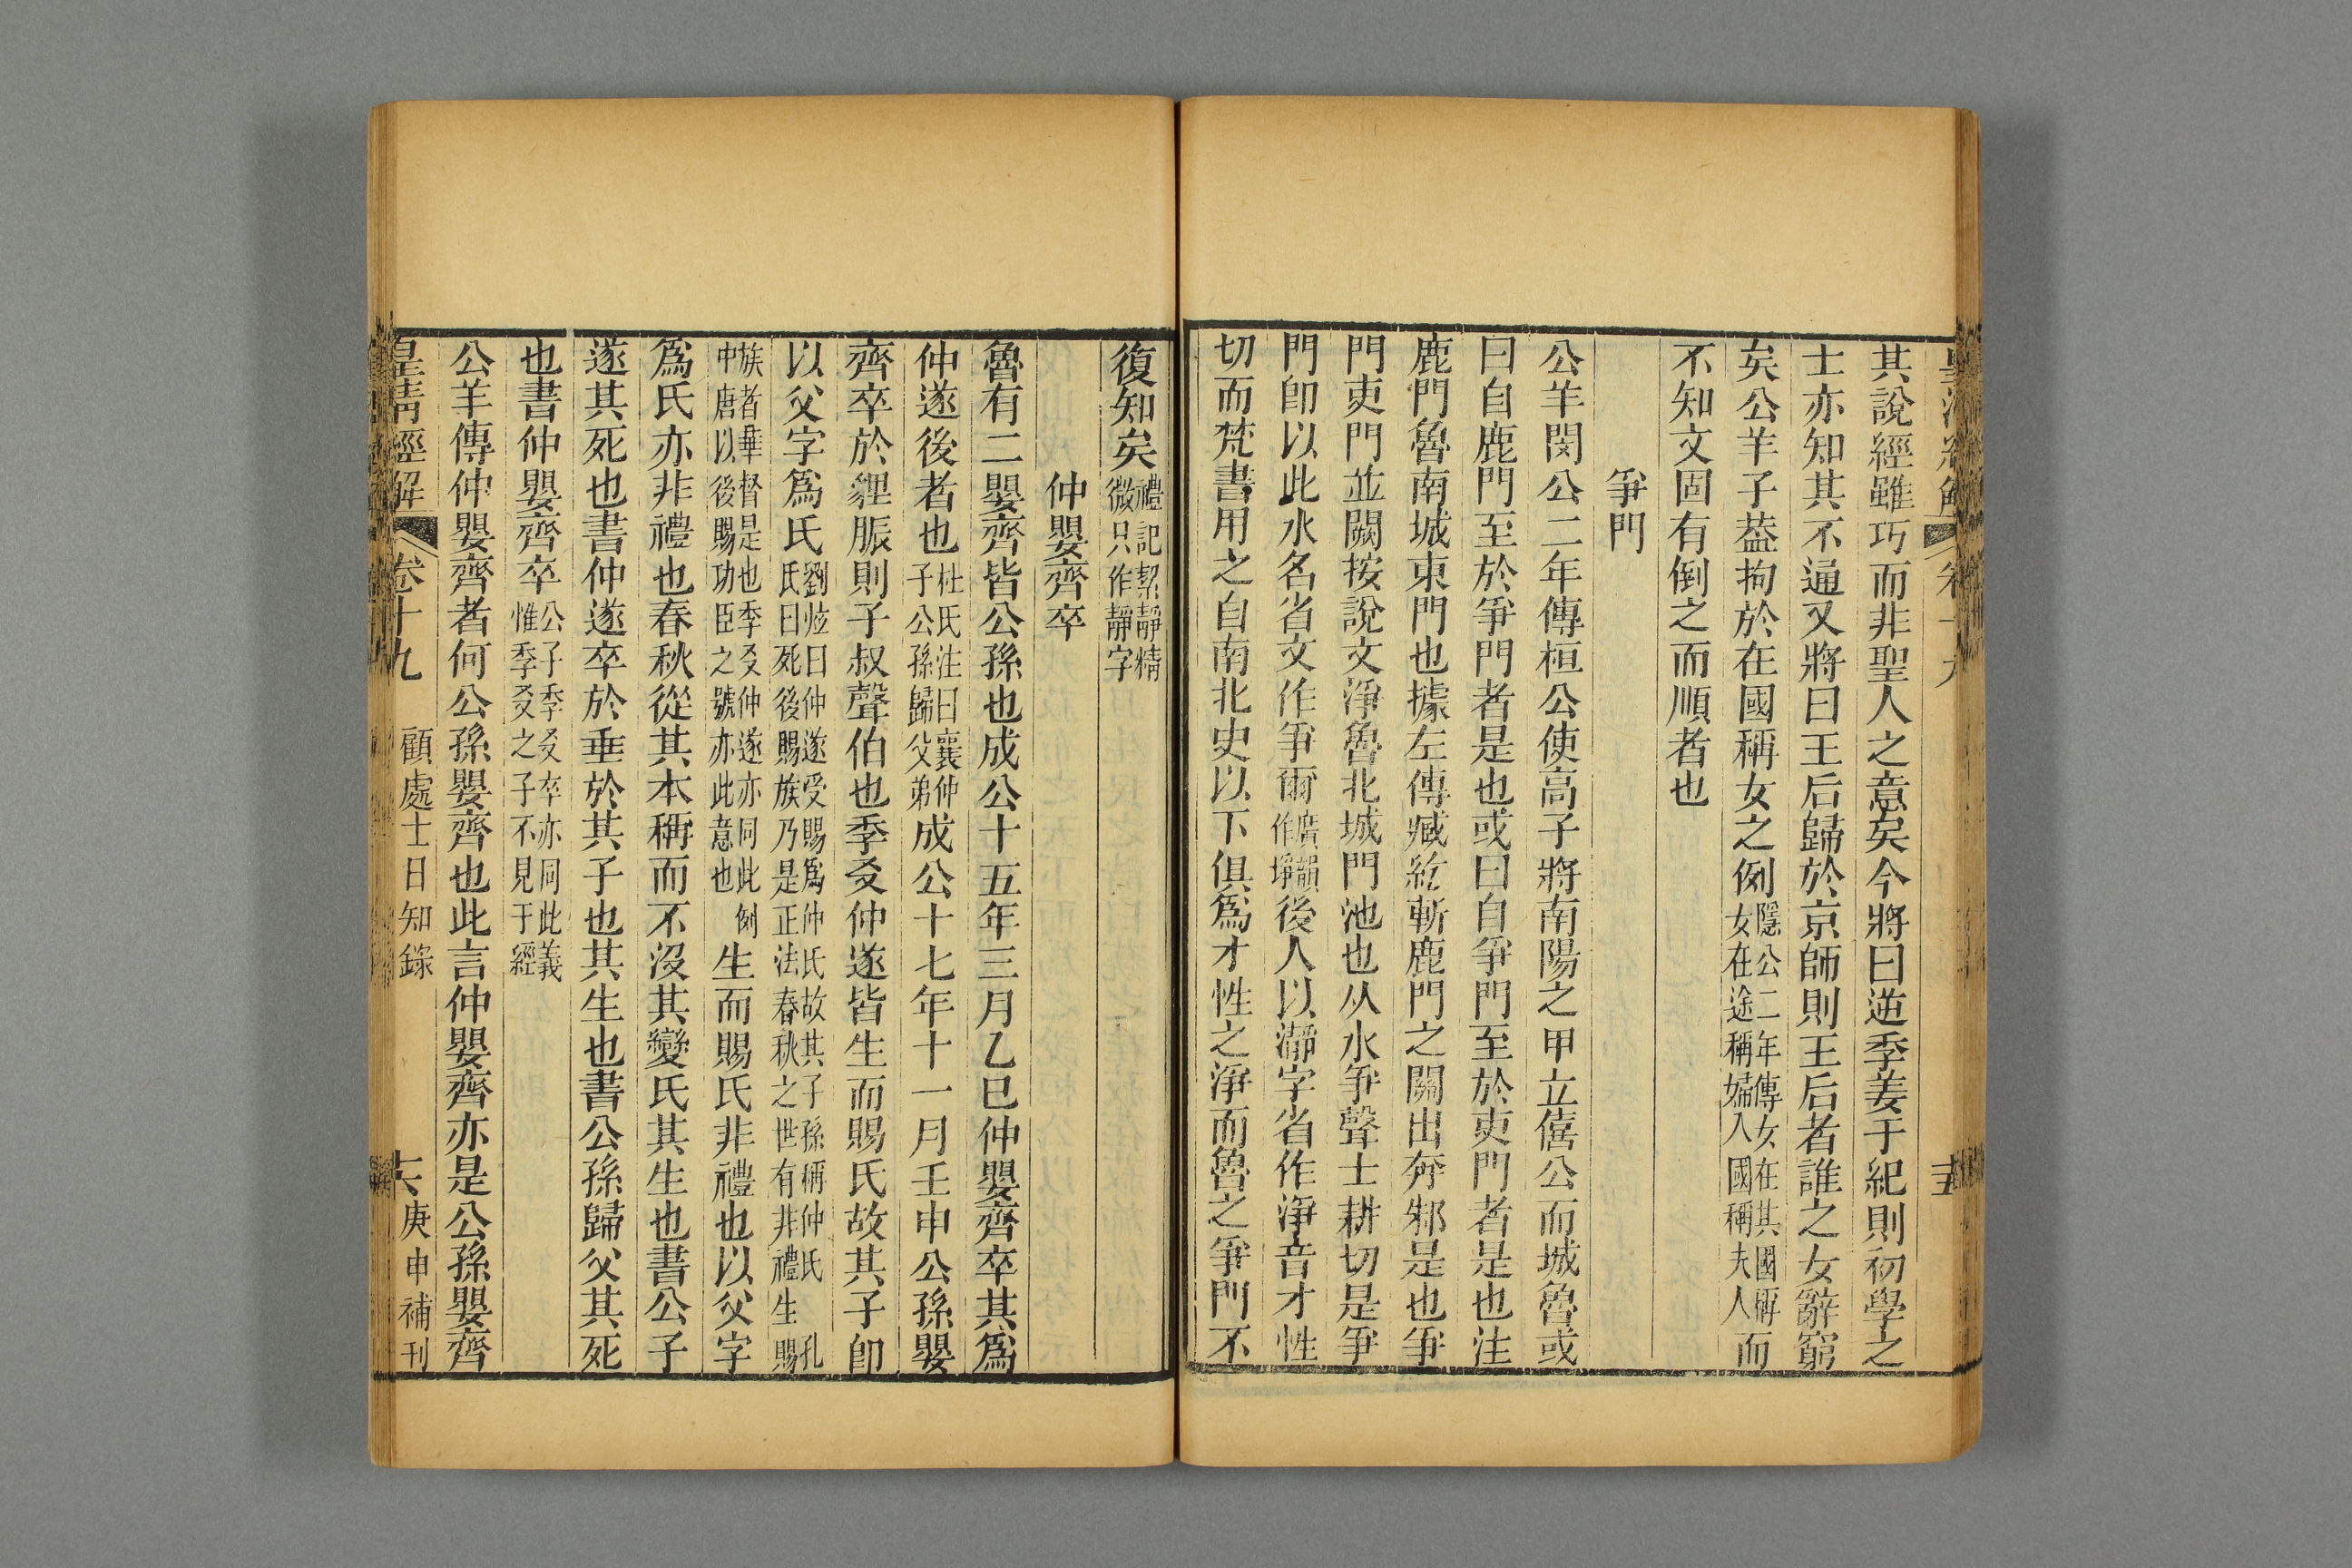 皇清經解 卷十九 十五
其說經雖巧而非聖人之意矣今將曰逆季姜于紀則初學之
士亦知其不通又將曰王后歸於京師則王后者誰之女辭窮
矣公羊子葢拘於在國稱女之例隱公二年傳女在其國稱女在途稱婦入國稱夫人而
不知文固有倒之而順者也
爭門
公羊閔公二年傳桓公使高子將南陽之甲立僖公而城魯或
曰自鹿門至於爭門者是也或曰自爭門至於吏門者是也注
鹿門魯南城東門也據左傳臧紇斬鹿門之關出奔邾是也爭
門吏門並闕按說文淨魯北城門池也从水爭聲士耕切是爭
門卽以此水名省文作爭爾廣韻作埩後人以瀞字省作淨音才性
切而梵書用之自南北史以下俱爲才性之淨而魯之爭門不
復知矣禮記絜靜精微只作靜字
仲嬰齊卒
魯有二嬰齊皆公孫也成公十五年三月乙巳仲嬰齊卒其爲
仲遂後者也杜氏注曰襄仲子公孫歸父弟成公十七年十一月壬申公孫嬰
齊卒於貍脤則子叔聲伯也季友仲遂皆生而賜氏故其子卽
以父字爲氏劉炫曰仲遂受賜爲仲氏故其子孫稱仲氏孔氏曰死後賜族乃是正法春秋之世有非禮生賜
族者華督是也季友仲遂亦同此例中唐以後賜功臣之號亦此意也生而賜氏非禮也以父字
爲氏亦非禮也春秋從其本稱而不沒其變氏其生也書公子
遂其死也書仲遂卒於垂於其子也其生也書公孫歸父其死
也書仲嬰齊卒公子季友卒亦同此義惟季友之子不見于經
公羊傳仲嬰齊者何公孫嬰齊也此言仲嬰齊亦是公孫嬰齊
皇清經解 卷十九 顧處士日知錄 十六 庚申補刊